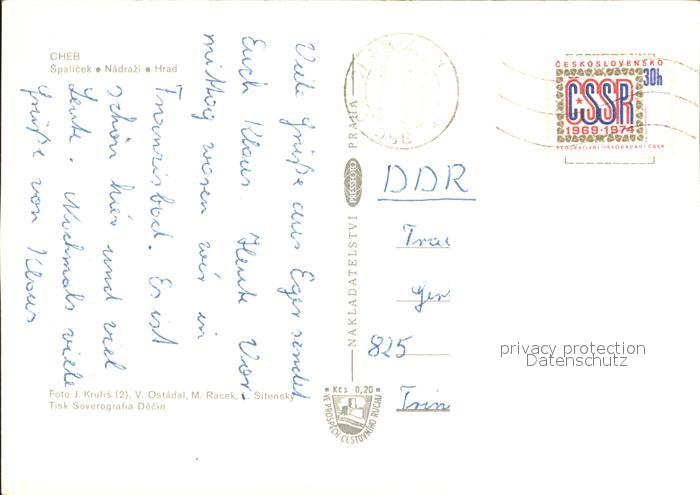 CHEB
Špalíček • Nádraží • Hrad
Viele Grüße aus Eger sendet
Euch Klaus. Heute Vor-
mittag waren wir in
Franzisbad. Es ist
schön hier und viel
Leute. Nochmals viele
Grüße von Klaus
Foto J. Kruliš (2), V. Ostádal, M. Racek, Sitenský
Tisk Severografia Děčín
NAKLADATELSTVÍ PRESSFOTO PRAHA
Kčs 0,20
VE PROSPĚCH CESTOVNÍHO RUCHU
ČESKOSLOVENSKO
30h
ČSSR
1969-1974
FEDERATIVNÍ USPOŘÁDÁNÍ ČSSR
DDR
Frau
Ger
825
privacy protection
Datenschutz